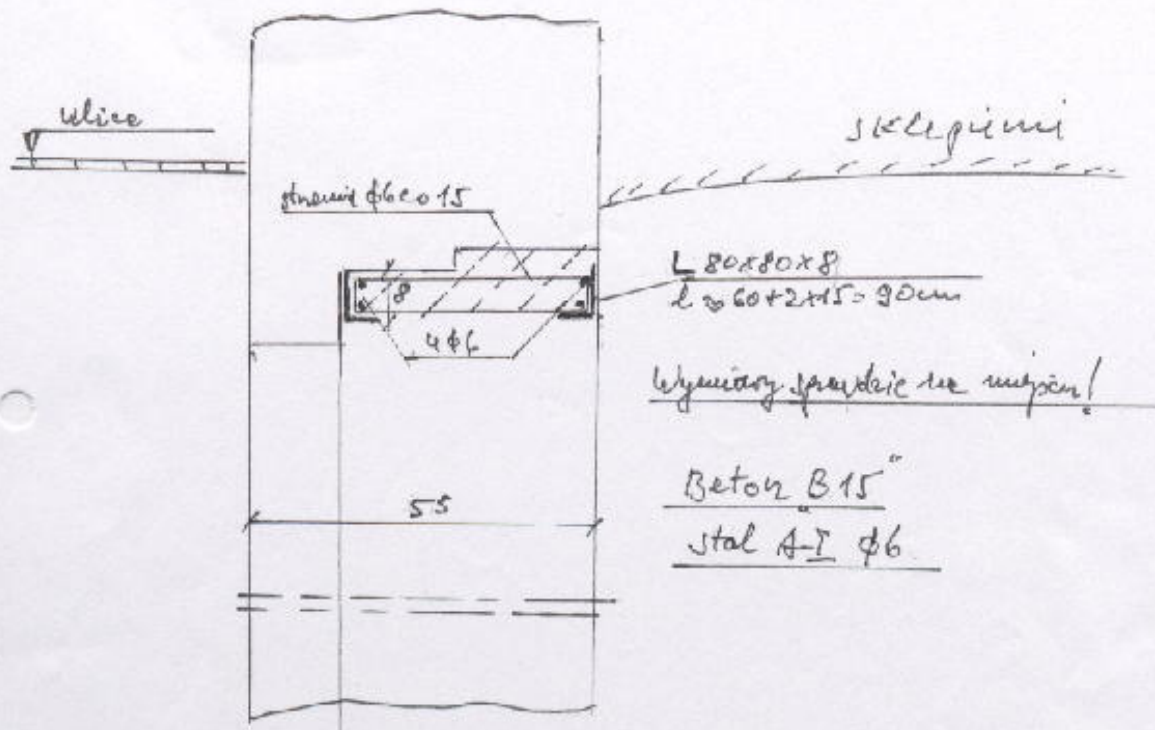 ulica
sklepienie
strzemię φ6 co 15
L 80x80x8
l ≈ 60+2x15= 90cm
8
4φ6
Wymiary sprawdzić na miejscu!
55
Beton B15"
stal A-I φ6